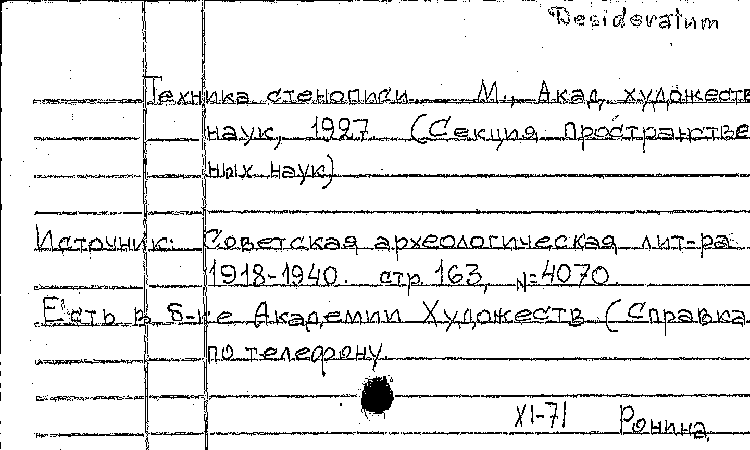 Desideratum
Техника стенописи. М., Акад. художеств
наук, 1927. (Секция пространстве
ных наук)
Источник: Советская археологическая лит-ра
1918-1940. стр. 163, №4070.
Есть в б-ке Академии Художеств (Справка
по телефону.
XI-71 Ронина